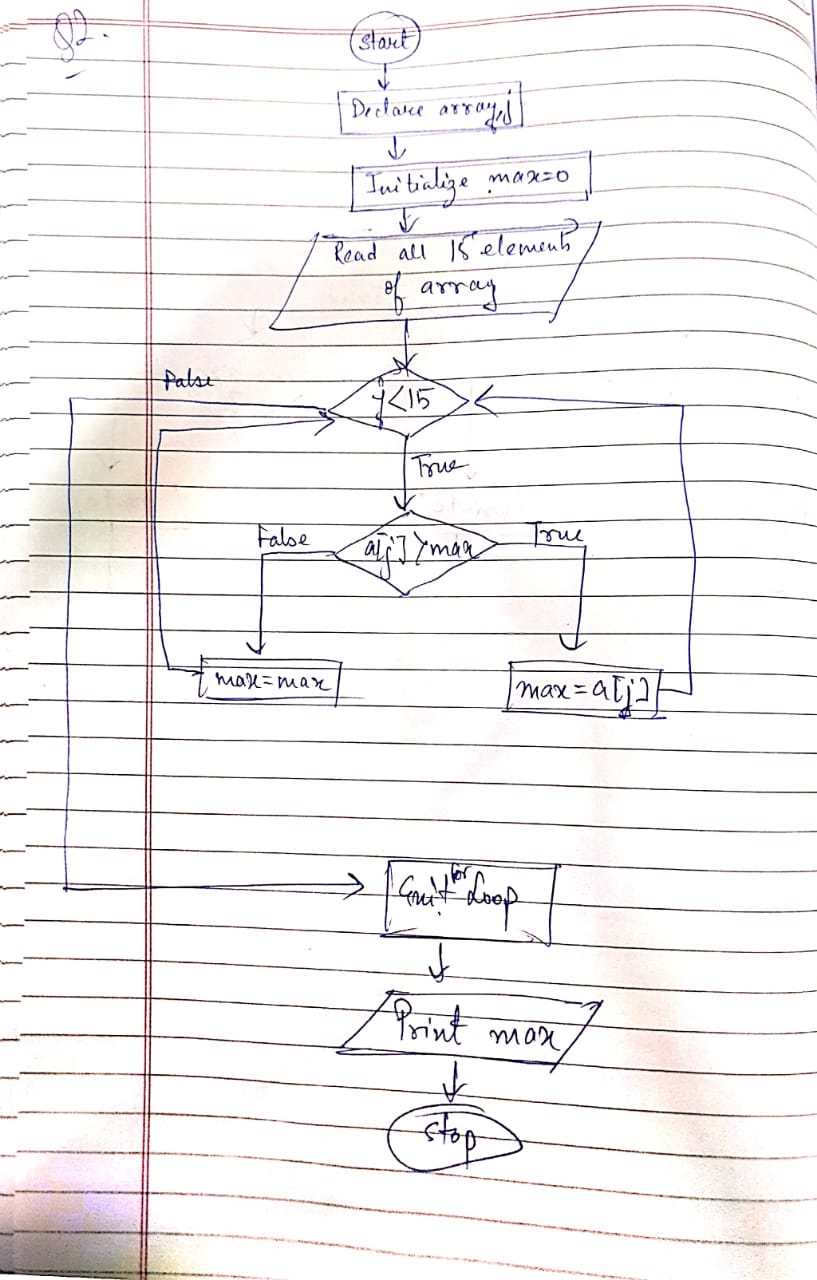 Q2.
Start
Declare array, j
Initialize max=0
Read all 15 elements
of array
False
j<15
True
False
a[j]>max
True
max=max
max=a[j]
for
Exit Loop
Print max
Stop